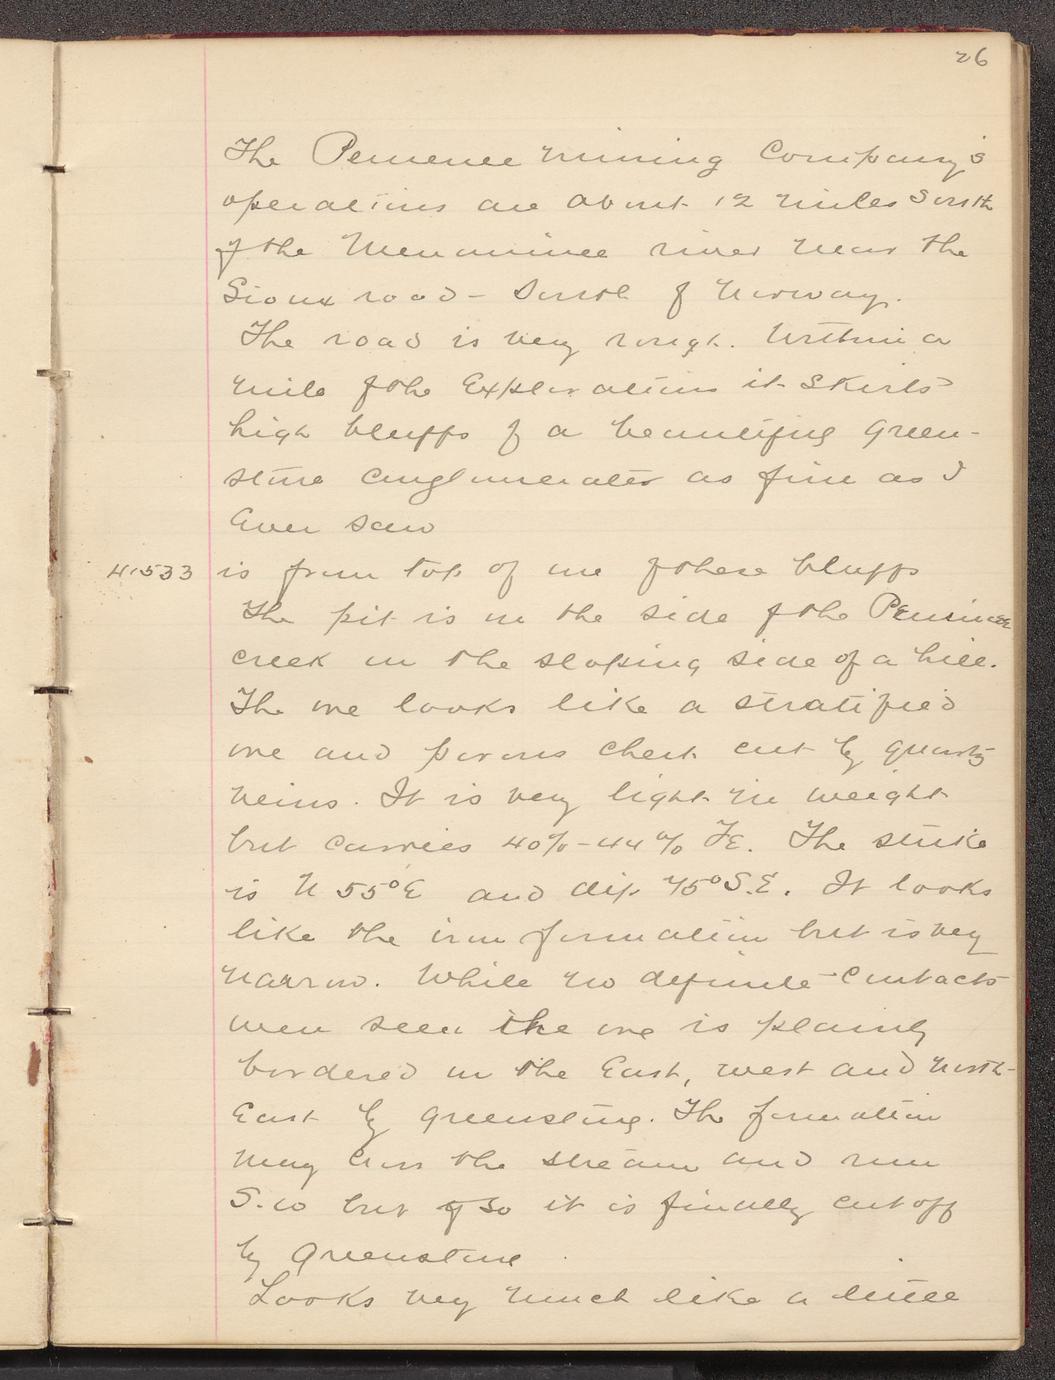 26
The Pemenee Mining Company's
operations are about 12 miles South
of the Menominee river near the
Sioux road - South of Norway.
The road is very rough. Within a
mile of the Explorations it skirts
high bluffs of a beautiful green-
stone conglomerate as fine as I
Ever saw
41533 is from top of one of these bluffs
The pit is on the side of the Pemenee
creek on the sloping side of a hill.
The ore looks like a stratified
ore and porous chert cut by quartz
veins. It is very light in weight
but carries 40%-44% Fe. The strike
is N 55° E and dip 75° S.E. It looks
like the iron formation but is very
narrow. While no definite contacts
were seen the ore is plainly
bordered on the East, west and North-
East by greenstone. The formation
may cross the stream and run
S.W but if so it is finally cut off
by Greenstone
Looks very much like a little